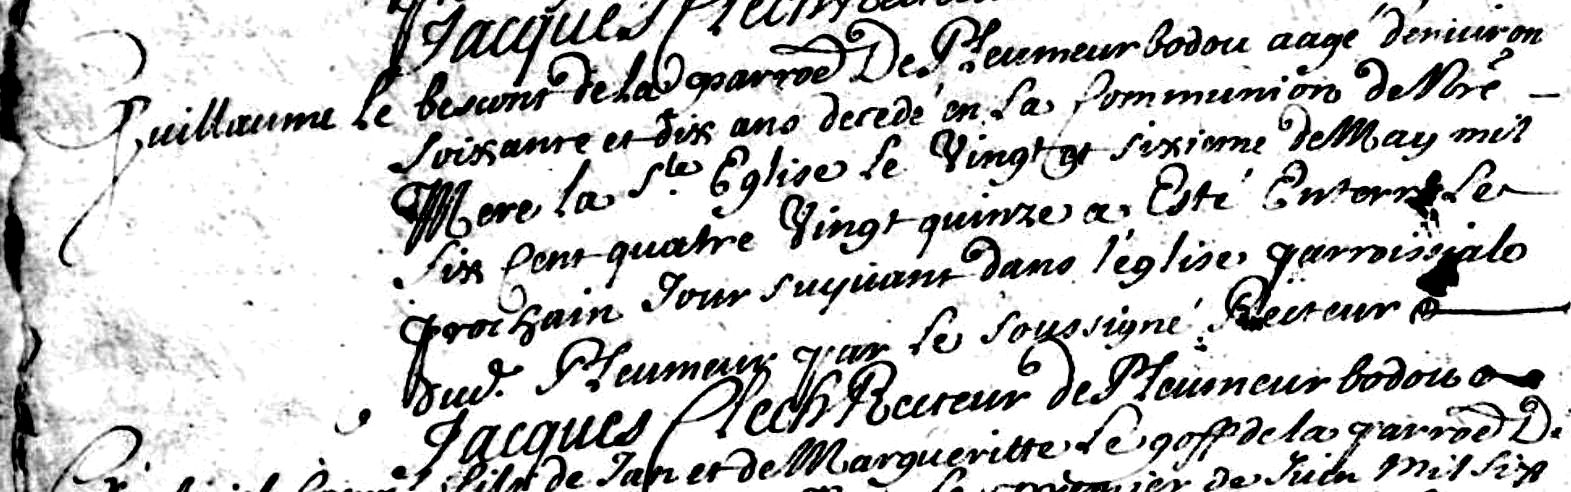 Jacques Clech
Guillaume le bescont de la parroe De Pleumeur bodou aagé denuiron
soixante et dix ans decedé en la Communion de Nre
Mere la Ste Eglise le Vingt et sixieme de May mil
six Cent quatre Vingt quinze a Esté Enterré le
prochain Jour suyuant dans l'église parroissiale
dud. Pleumeur par le soussigné Recteur
Jacques Clech Recteur de Pleumeur bodou
fils de Jan et de Margueritte Le goff de la parroe De
de Juin mil six